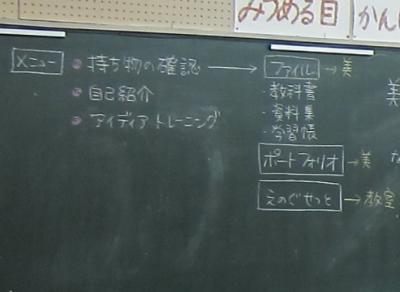 みつめる目
かん
メニュー
・持ち物の確認 → ファイル → 美
・教科書
・資料集
・学習帳
・自己紹介
・アイディアトレーニング
ポートフォリオ → 美
えのぐせっと → 教室
美
な